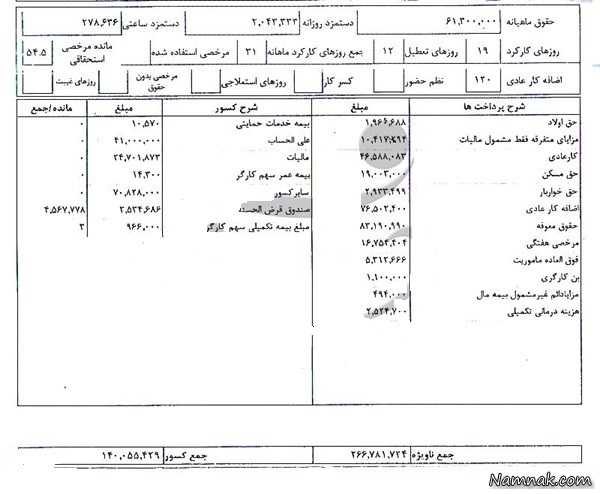 حقوق ماهیانه ۶۱,۳۰۰,۰۰۰ دستمزد روزانه ۲,۰۴۳,۳۳۳ دستمزد ساعتی ۲۷۸,۶۳۶
روزهای کارکرد ۱۹ روزهای تعطیل ۱۲ جمع روزهای کارکرد ماهانه ۳۱ مرخصی استفاده شده مانده مرخصی استحقاقی ۵۴.۵
اضافه کار عادی ۱۲۰ نظم حضور کسر کار روزهای استعلاجی مرخصی بدون حقوق روزهای غیبت
شرح پرداخت ها مبلغ شرح کسور مبلغ مانده/جمع
حق اولاد ۱,۹۶۶,۶۸۸ بیمه خدمات حمایتی ۱۰,۵۷۰ ۰
مزایای متفرقه فقط مشمول مالیات ۱۰,۴۱۷,۲۹۴ علی الحساب ۴۱,۰۰۰,۰۰۰ ۰
کارعادی ۴۶,۵۸۸,۰۸۳ مالیات ۲۴,۷۰۱,۸۷۳ ۰
حق مسکن ۱۹,۰۰۳,۰۰۰ بیمه عمر سهم کارگر ۱۴,۳۰۰ ۰
حق خواربار ۲,۹۳۳,۴۹۹ سایرکسور ۷۰,۸۲۸,۰۰۰ ۰
اضافه کار عادی ۷۶,۵۰۲,۴۰۰ صندوق قرض الحسنه ۲,۵۳۴,۶۸۶ ۴,۵۶۷,۷۷۸
حقوق معوقه ۸۳,۱۹۰,۹۹۰ مبلغ بیمه تکمیلی سهم کارگر ۹۶۶,۰۰۰ ۳
مرخصی هفتگی ۱۶,۷۵۲,۴۰۴
فوق العاده ماموریت ۵,۳۱۲,۶۶۶
بن کارگری ۱,۱۰۰,۰۰۰
مزایادائم غیرمشمول بیمه مال ۴۹۴,۰۰۰
هزینه درمانی تکمیلی ۲,۵۲۴,۷۰۰
جمع ناویژه ۲۶۶,۷۸۱,۷۲۴ جمع کسور ۱۴۰,۰۵۵,۴۲۹
Namnak.com